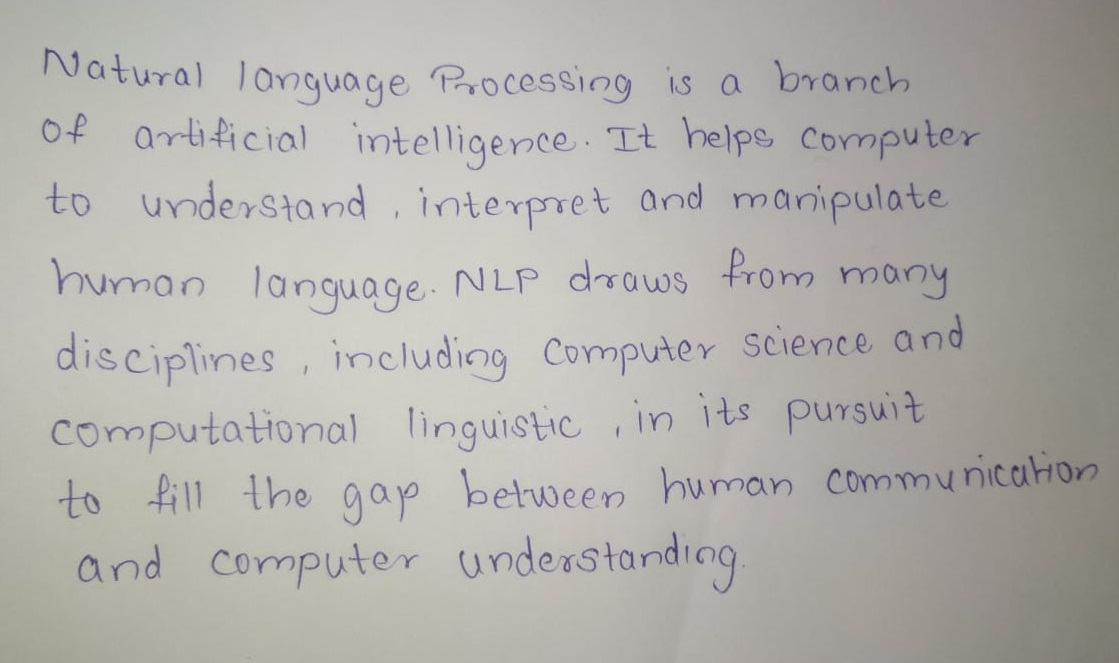 Natural language Processing is a branch
of artificial intelligence. It helps computer
to understand, interpret and manipulate
human language. NLP draws from many
disciplines, including computer science and
computational linguistic, in its pursuit
to fill the gap between human communication
and computer understanding.